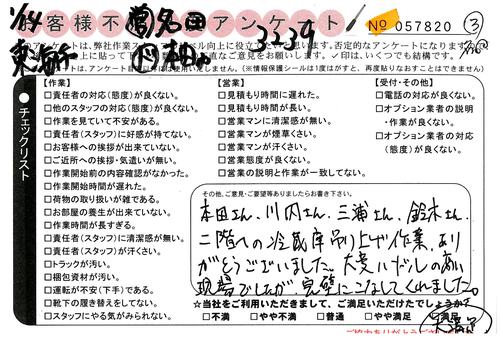 お客様不満足アンケート
No 057820 ③
3339
1/14
アンケートは、弊社作業スタッフの
✓印は、いくつでも結構です。
(※情報保護シールは1度はがすと、再度貼りなおすことはできません)
チェックリスト
【作業】
□責任者の対応(態度)が良くない。
□他のスタッフの対応(態度)が良くない。
□作業を見ていて不安がある。
□責任者(スタッフ)に好感が持てない。
□お客様への挨拶が出来ていない。
□ご近所への挨拶・気遣いが無い。
□作業開始前の内容確認がなかった。
□作業開始時間が遅れた。
□荷物の取り扱いが雑である。
□お部屋の養生が出来ていない。
□作業時間が長すぎる。
□責任者(スタッフ)に清潔感が無い。
□責任者(スタッフ)が汗くさい。
□トラックが汚い。
□梱包資材が汚い。
□運転が不安(下手)である。
□靴下の履き替えをしてない。
□スタッフにやる気がみられない。
【営業】
□見積もり時間に遅れた。
□見積もり時間が長い。
□営業マンに清潔感が無い。
□営業マンが煙草くさい。
□営業マンが汗くさい。
□営業態度が良くない。
□営業の説明と作業が一致してない。
【受付・その他】
□電話の対応が良くない。
□オプション業者の説明
・作業が良くない。
□オプション業者の対応
(態度)が良くない。
その他、ご意見・ご要望等ありましたらお書き下さい。
本田さん、川内さん、三浦さん、鈴木さん、
二階への冷蔵庫吊り上げ作業、あり
がとうございました。大変ハードルの高い
現場でしたが、完璧にこなしてくれました。
☆当社をご利用いただきまして、ご満足いただけたでしょうか?
□不満 □やや不満 □普通 □やや満足 □満足
大満足
ご協力ありがとうございました